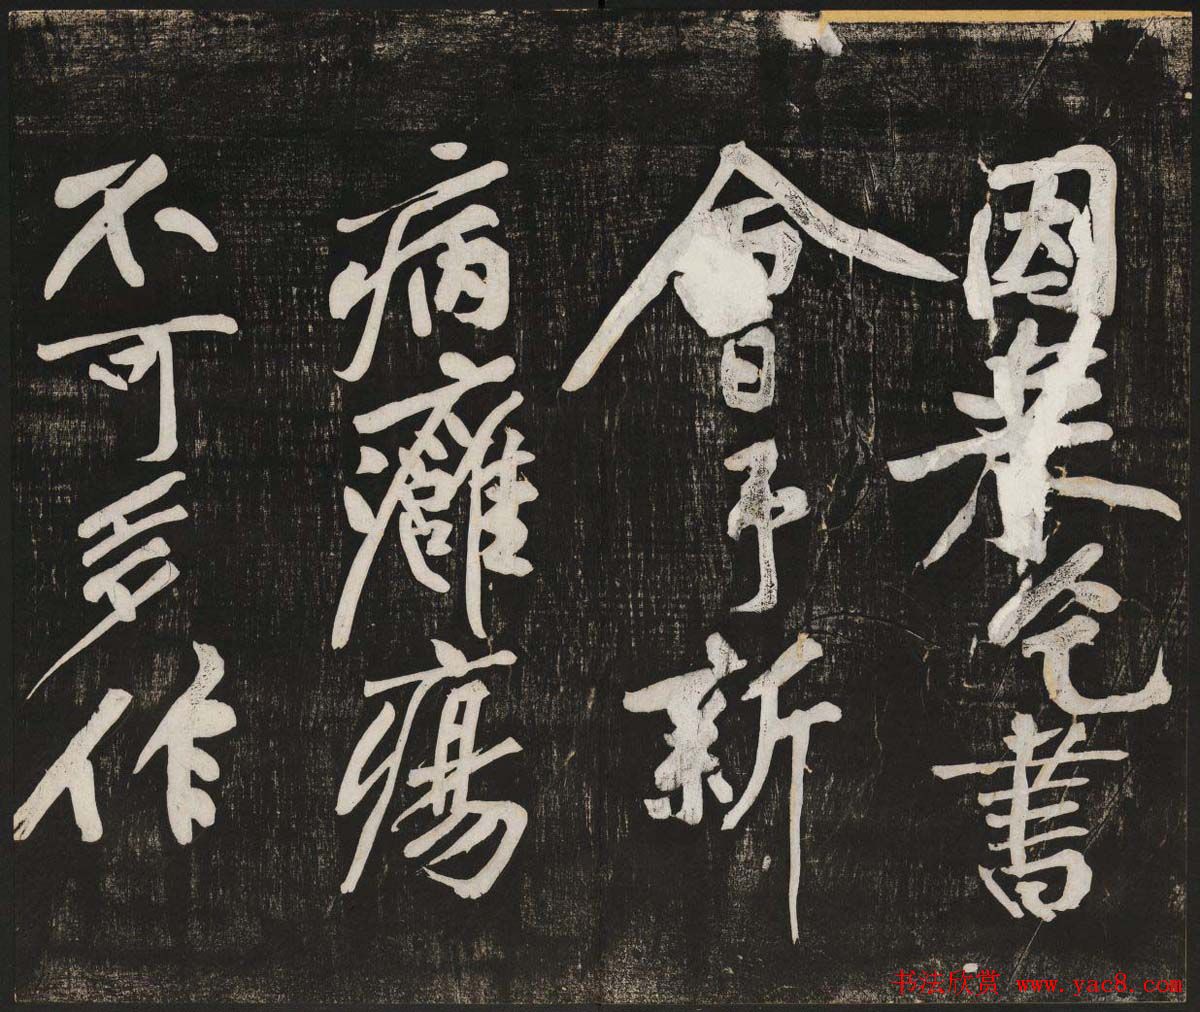 因來乞書
會予新
病癰瘍
不可多作
书法欣赏 www.yac8.com